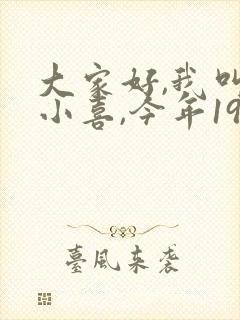 大家好,我叫
小喜,今年19
臺風来袭